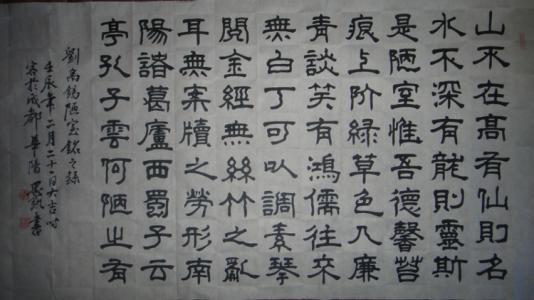 山不在高有仙則名
水不深有龍則靈斯
是陋室惟吾德馨苔
痕上阶緑草色入廉
青談笑有鴻儒往來
無白丁可以調素琴
閱金經無絲竹之亂
耳無案牘之勞形南
陽諸葛廬西蜀子云
亭孔子雲何陋之有
劉禹錫陋室銘之錄
壬辰年二月二十二日大吉时
客於成都華陽書